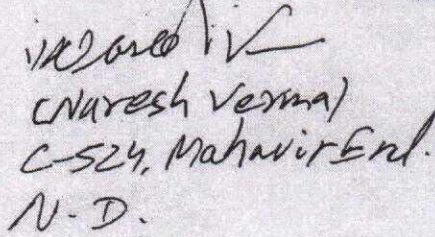 (Naresh Verma)
C-524, Mahavir Encl.
N. D.